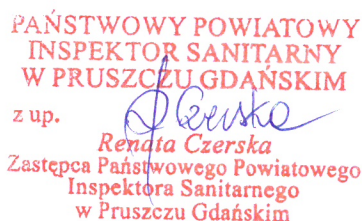 PAŃSTWOWY POWIATOWY
INSPEKTOR SANITARNY
W PRUSZCZU GDAŃSKIM
z up.
Czerska
Renata Czerska
Zastępca Państwowego Powiatowego
Inspektora Sanitarnego
w Pruszczu Gdańskim